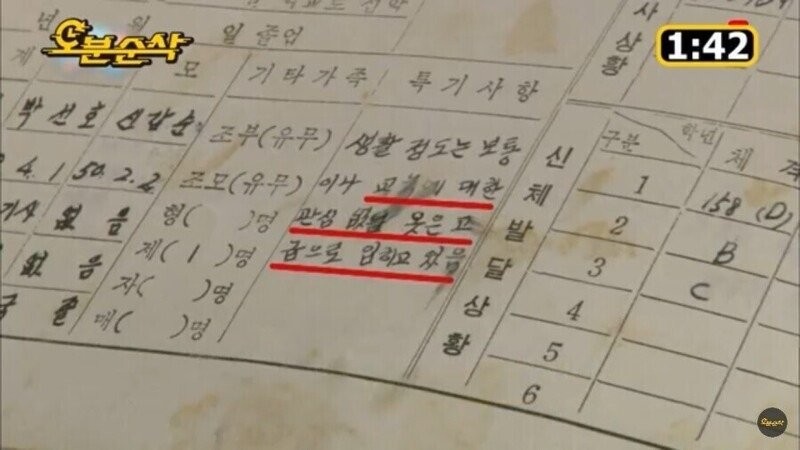 오분순삭
1:42
년 월 일 졸업
사상황
계 모 기타가족 특기사항
박선호 신갑순 조부(유무) 생활 정도는 보통
4.1 50.2.2 조모(유무) 이나 대한
없음 형( )명 관심 없 옷은 고
없음 제( 1 )명 급으로 입히고 있음
졸 자( )명
매( )명
신체발달상황
구분 학년 체격
1 158 (D)
2 B
3 C
4
5
6
오분순삭